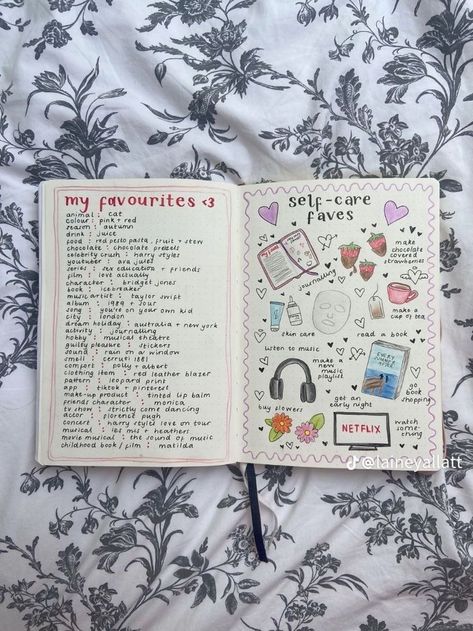 my favourites <3
animal : cat
colour : pink + red
season : autumn
drink : juice
food : red pesto pasta, fruit + stew
chocolate : chocolate pretzels
celebrity crush : harry styles
youtuber : ava jules
series : sex education + friends
film : love actually
character : bridget jones
book : icebreaker
music artist : taylor swift
album : 1989 + sour
song : you're on your own kid
city : london
dream holiday : australia + new york
activity : journalling
hobby : musical theatre
guilty pleasure : stickers
sound : rain on a window
smell : cerruti 1881
comfort : polly + albert
clothing item : red leather blazer
pattern : leopard print
app : tiktok + pinterest
make-up product : tinted lip balm
friends character : monica
tv show : strictly come dancing
actor : florence pugh
concert : harry styles love on tour
musical : les mis + heathers
movie musical : the sound of music
childhood book / film : matilda
self-care
faves
journalling
make
chocolate
covered
strawberries
make a
cup of tea
skin care
read a book
listen to music
make a
new music
playlist
EVERY
go
book
shopping
get an
early night
buy flowers
NETFLIX
watch
some-
thing
@laineyallatt